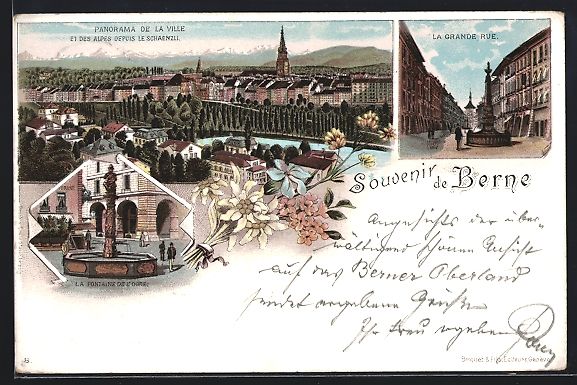 PANORAMA DE LA VILLE
ET DES ALPES DEPUIS LE SCHAENZLI.
LA GRANDE RUE.
Souvenir de Berne
Angesichts der über-
wältigend schönen Ansicht
auf das Berner Oberland
sendet ergebene Grüße
Ihr treu ergebener
LA FONTAINE DE L'OGRE.